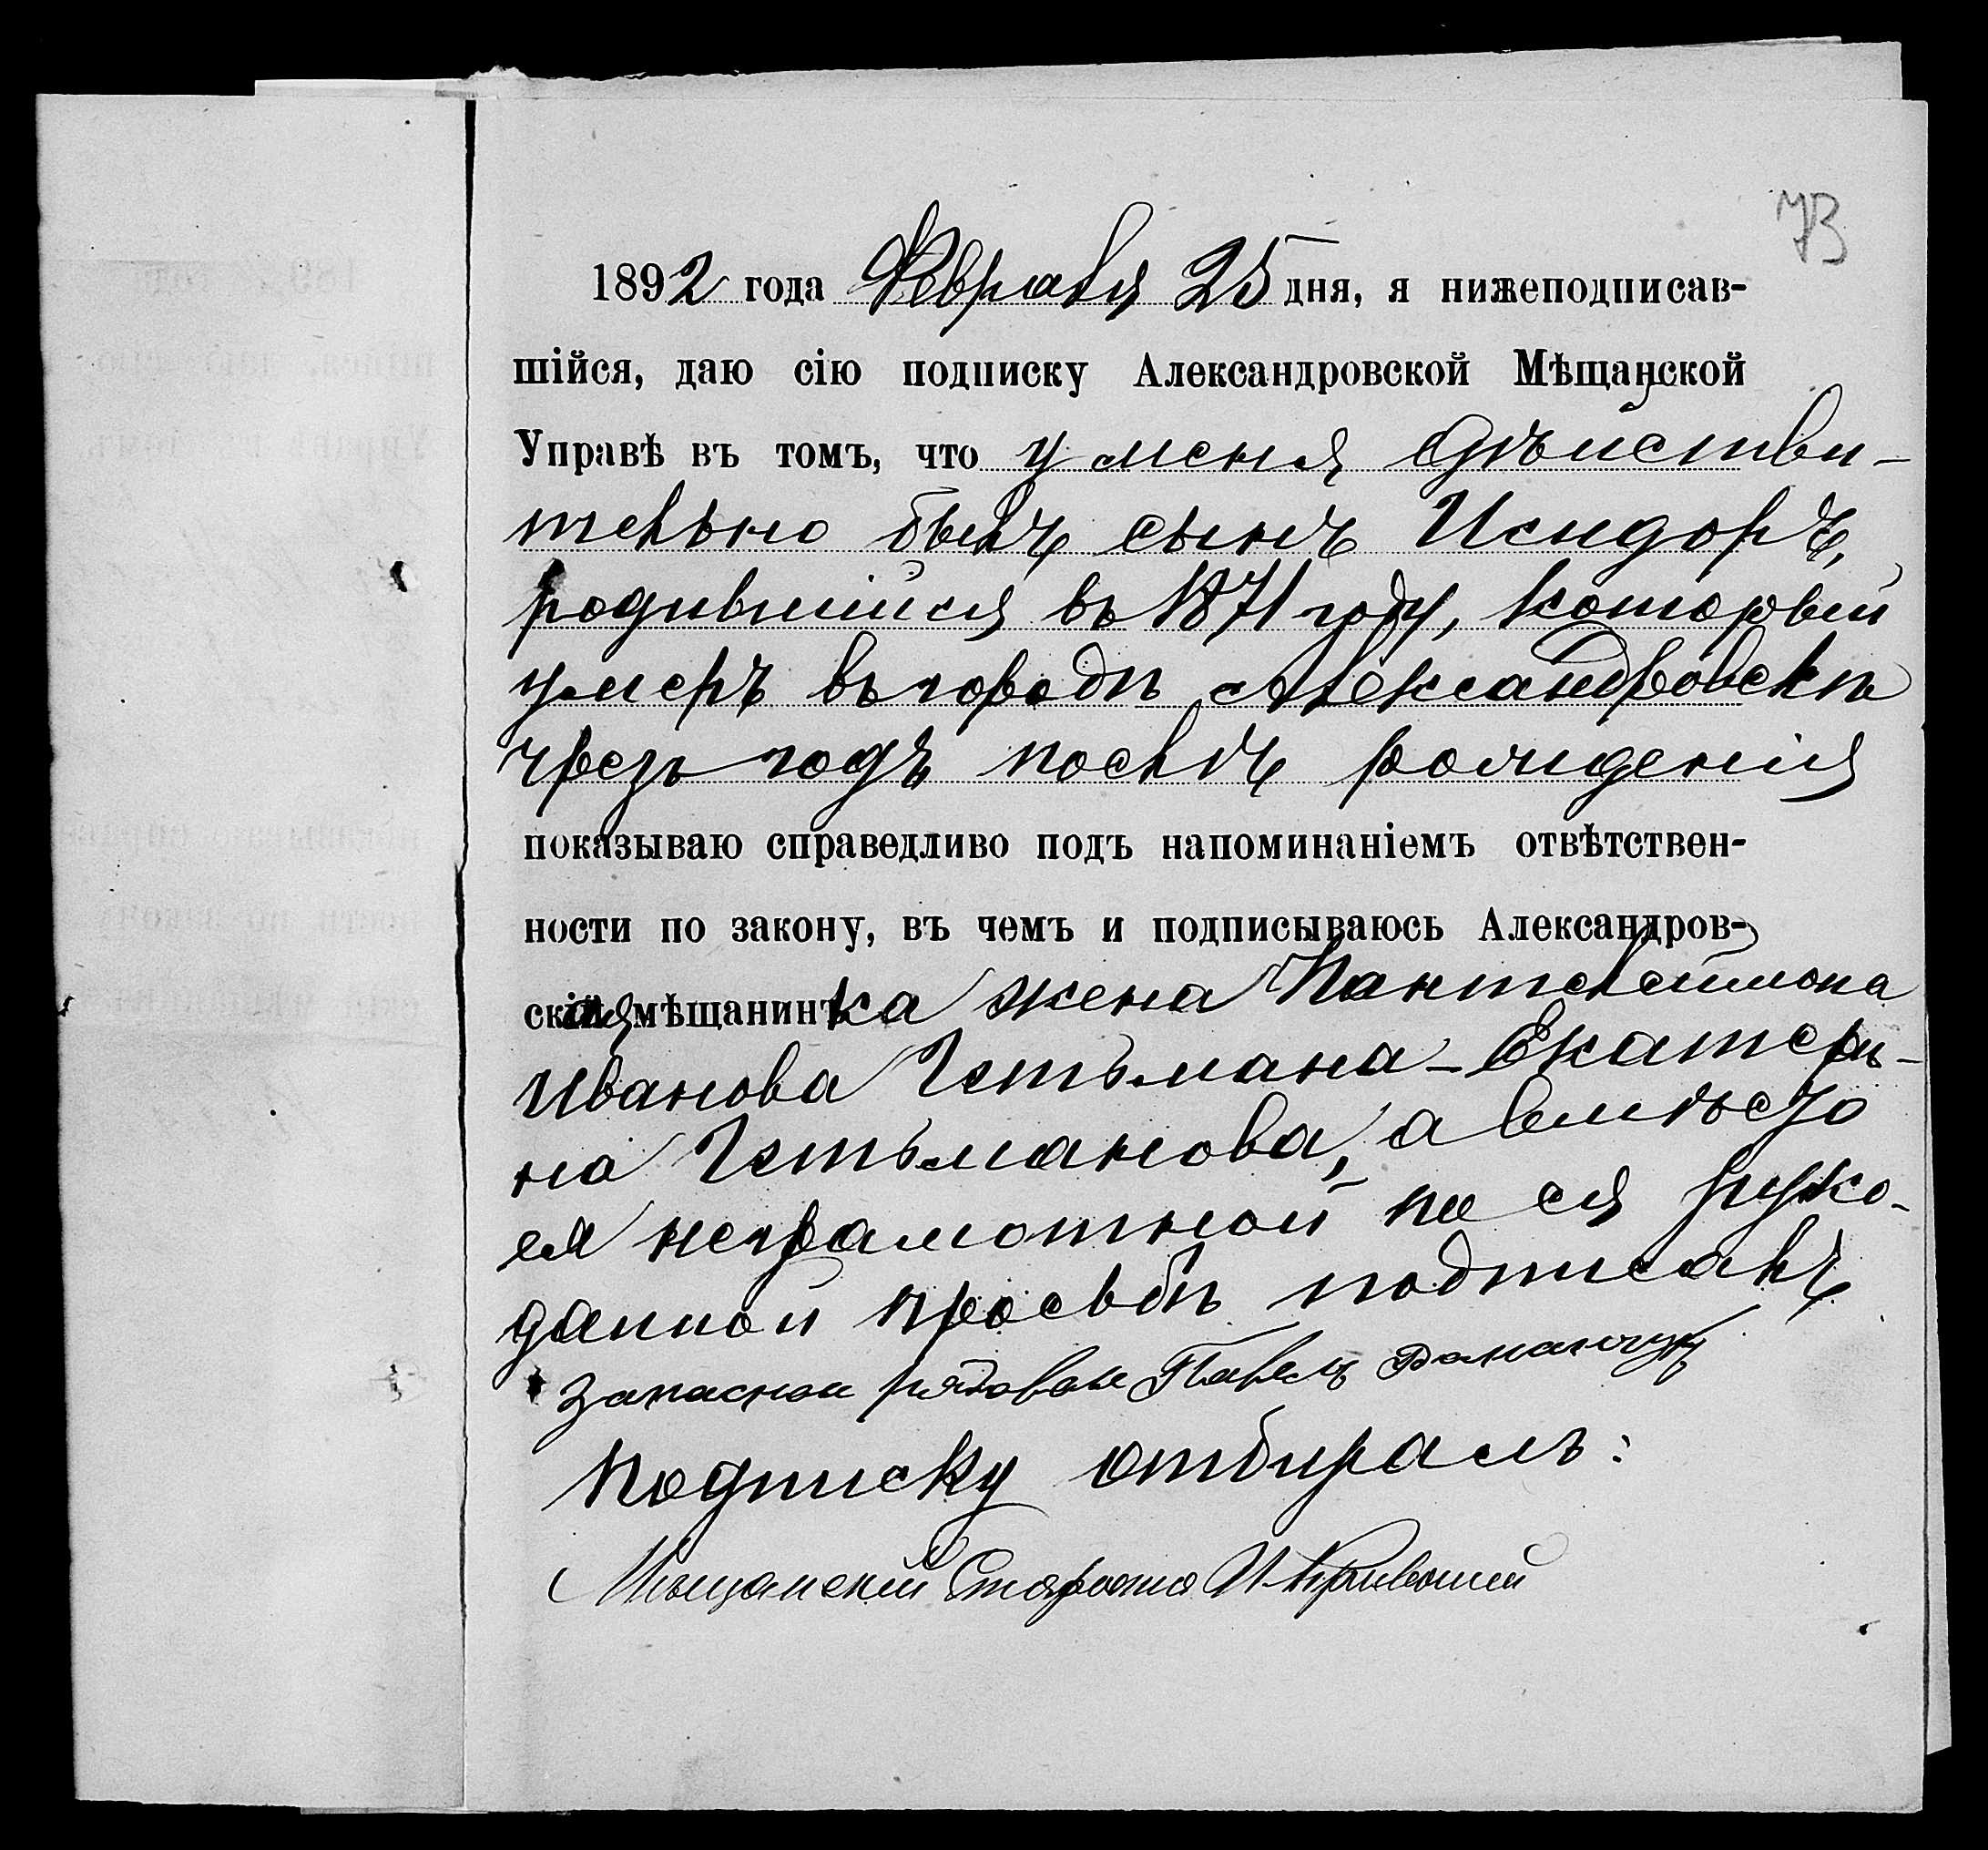 73
1892 года Февраля 25 дня, я нижеподписав-
шійся, даю сію подписку Александровской Мѣщанской
Управѣ въ томъ, что у меня дѣйстви-
тельно былъ сынъ Исидоръ,
родившійся въ 1871 году, который
умеръ въ городѣ Александровскѣ
чрезъ годъ послѣ рожденія
показываю справедливо подъ напоминаніемъ отвѣтствен-
ности по закону, въ чемъ и подписываюсь Александров-
ская мѣщанинка жена Пантелеимона
Иванова Гетьмана - Екатери-
на Гетьманова, а вмѣсто
ея неграмотной по ея руко-
данной просьбѣ подписалъ
Запасной рядовой Павелъ Романчукъ
Подписку отбиралъ:
Мѣщанскій Староста И. Кривошей